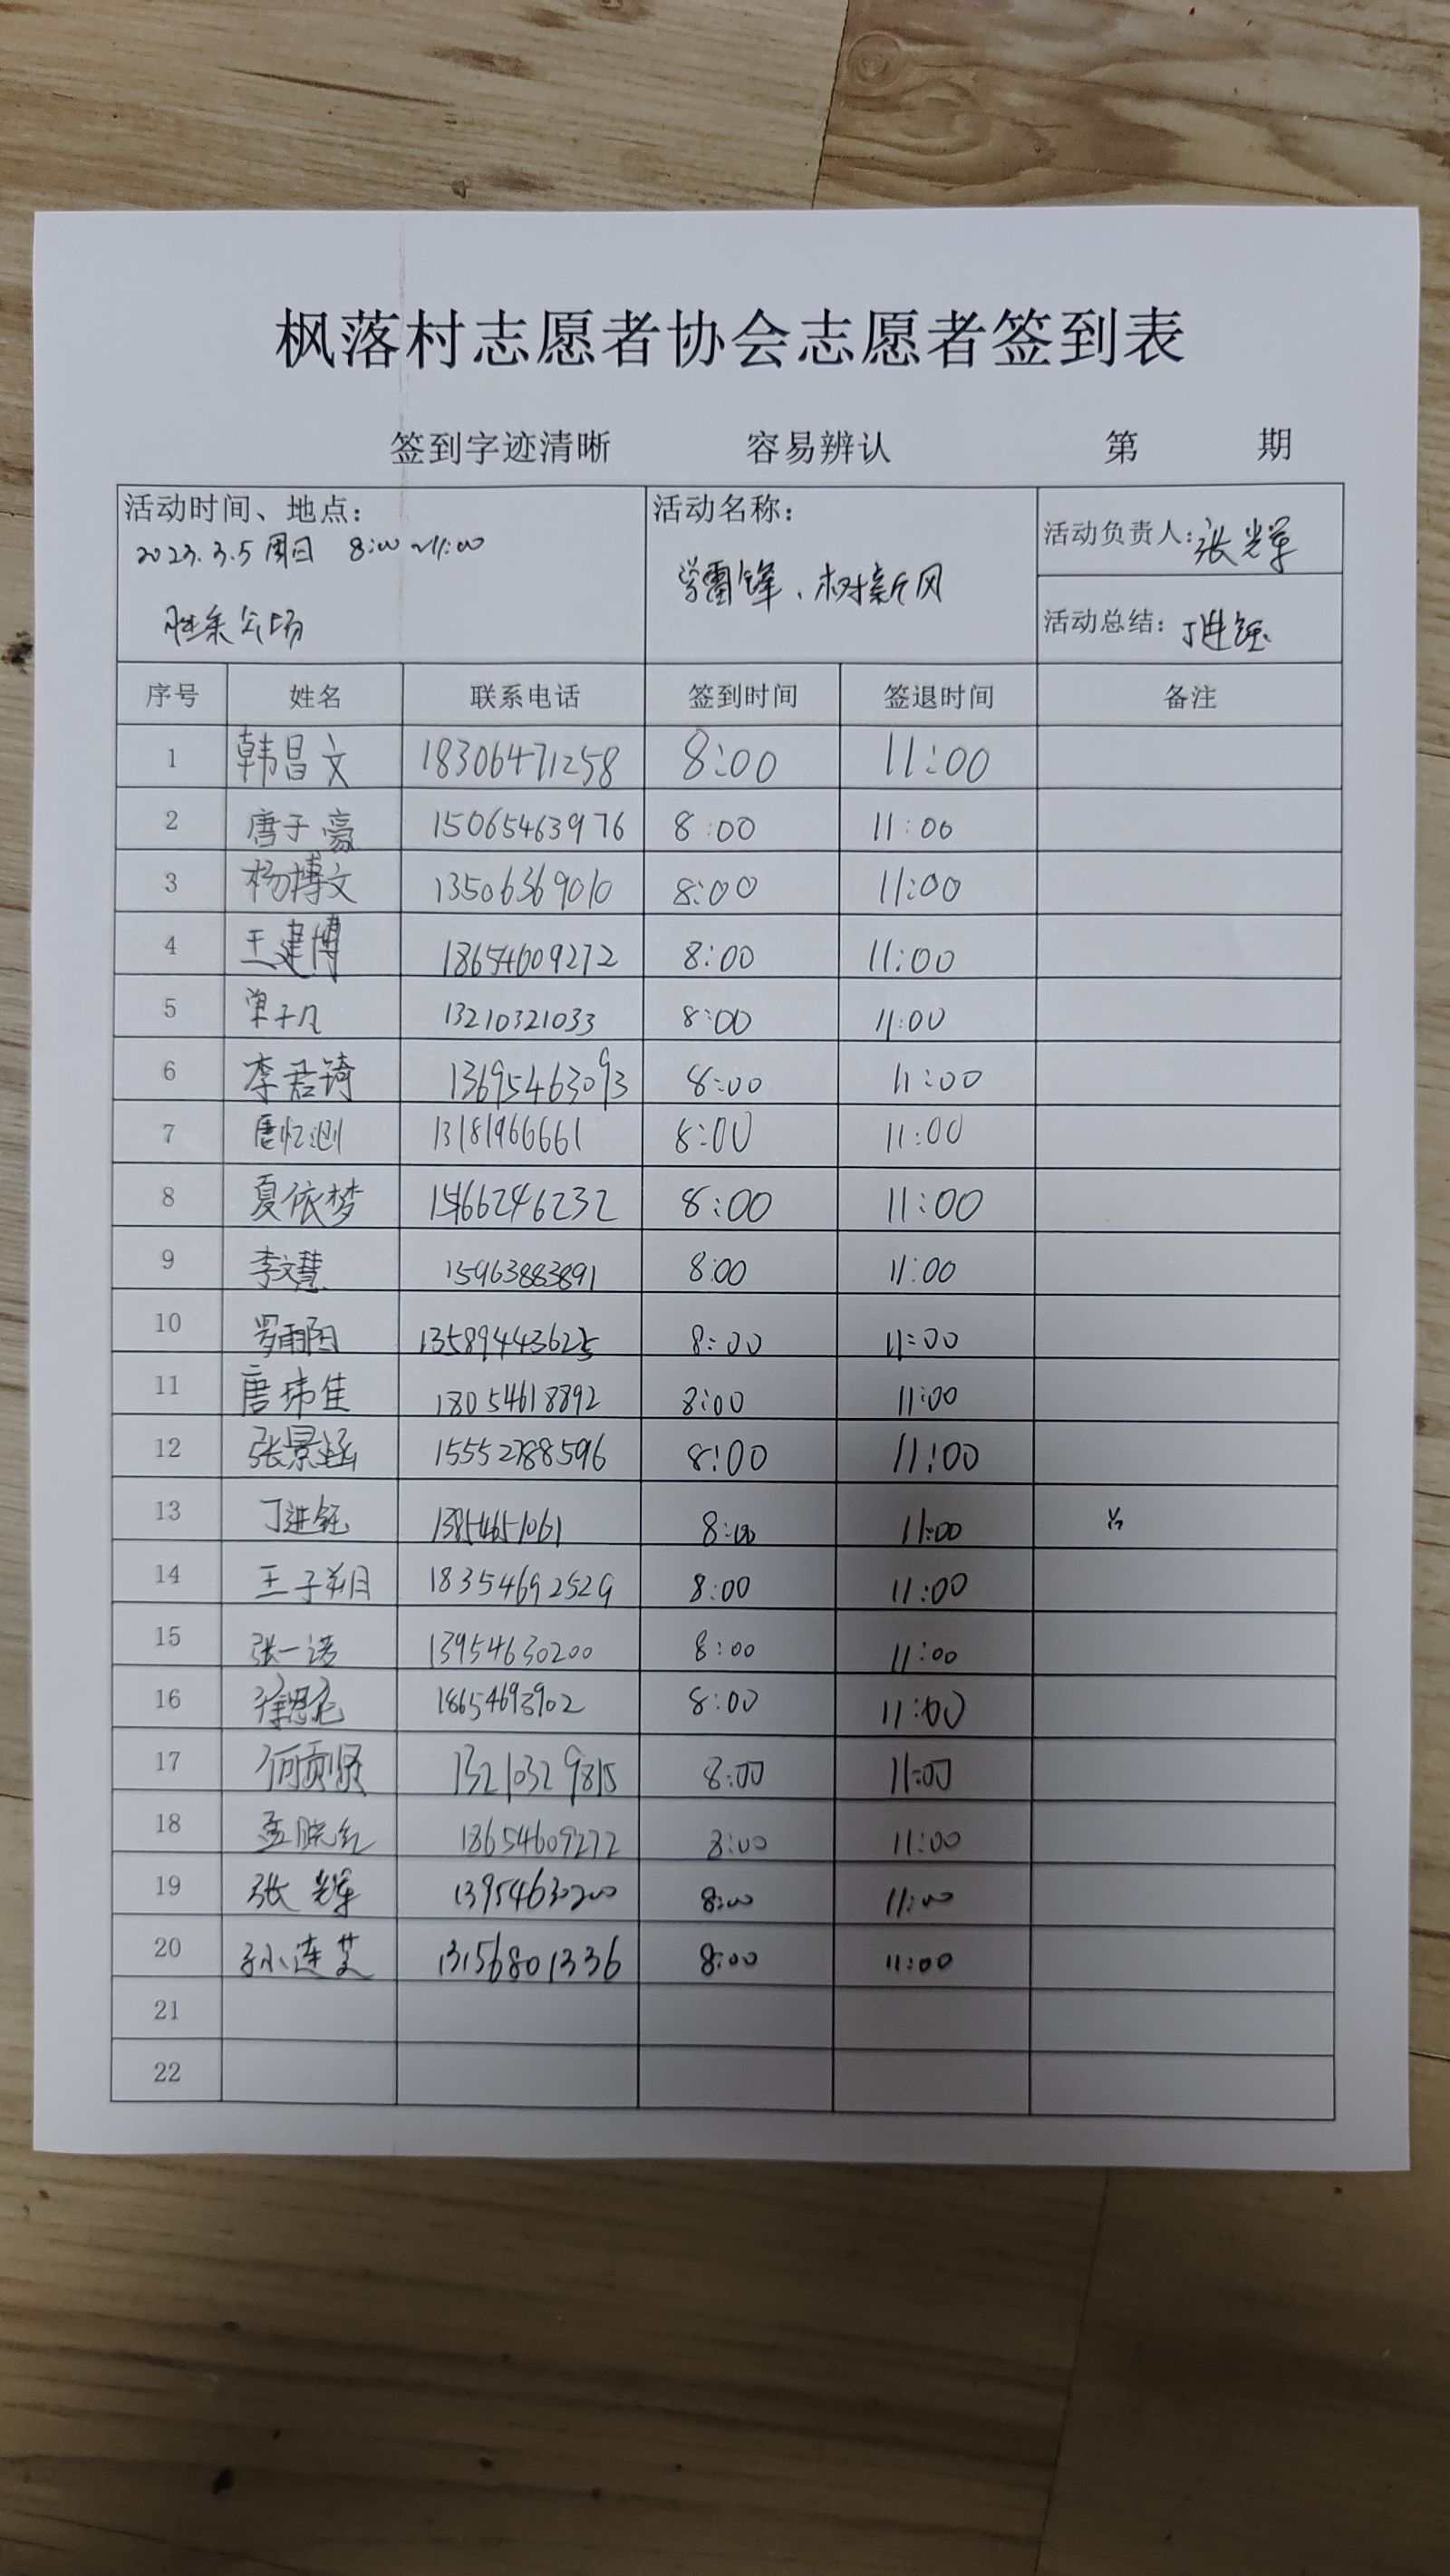 枫落村志愿者协会志愿者签到表
签到字迹清晰 容易辨认 第 期
活动时间、地点： 活动名称： 活动负责人：张光军
2023.3.5 周日 8:00~11:00
学雷锋、树新风
广场 活动总结：丁进钰
序号 姓名 联系电话 签到时间 签退时间 备注
1 韩昌文 18306471258 8:00 11:00
2 唐子豪 15065463976 8:00 11:00
3 杨博文 13506369010 8:00 11:00
4 王建博 18654609272 8:00 11:00
5 单子凡 13210321033 8:00 11:00
6 李君锜 13695463093 8:00 11:00
7 唐忆 13181966661 8:00 11:00
8 夏依梦 15166246232 8:00 11:00
9 李文慧 15963883891 8:00 11:00
10 罗雨阳 13589443625 8:00 11:00
11 唐玮佳 18054618892 8:00 11:00
12 张景涵 15552788596 8:00 11:00
13 丁进钰 13854651061 8:00 11:00
14 王子朔 18354692529 8:00 11:00
15 张一诺 13954630200 8:00 11:00
16 徐 18654693902 8:00 11:00
17 何贡贤 13210329815 8:00 11:00
18 孟晓红 18654609272 8:00 11:00
19 张光军 13954630200 8:00 11:00
20 孙连芝 13156801336 8:00 11:00
21
22